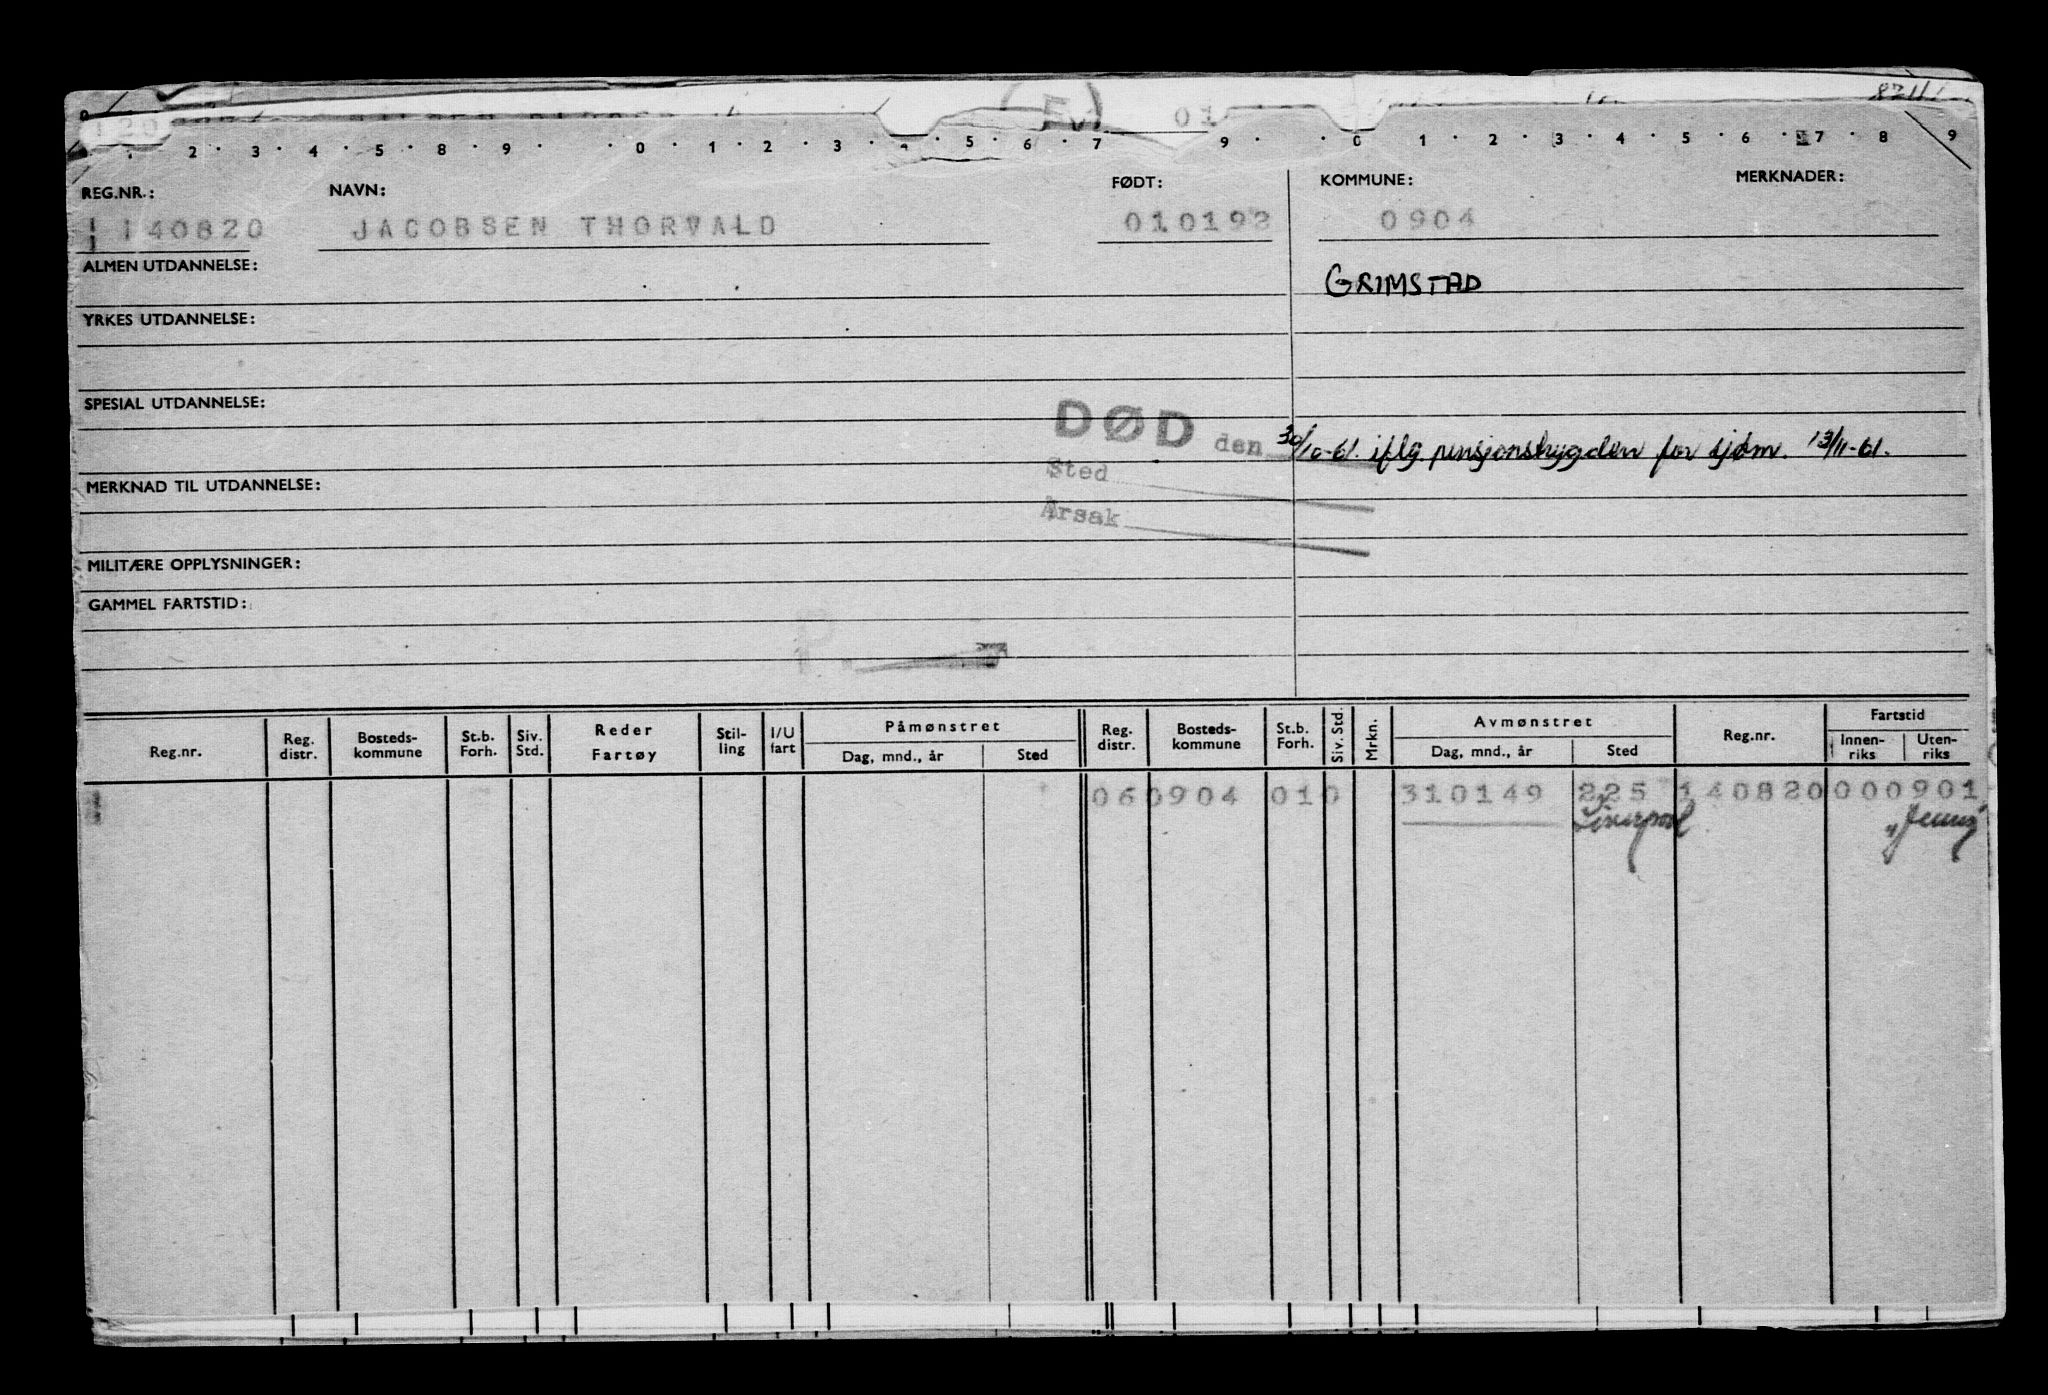 8 2 1 1 1
01
1 2 3 4 5 8 9 0 1 2 3 5 6 7 9 0 1 2 3 4 5 6 7 8 9
REG.NR.: NAVN: FØDT: KOMMUNE: MERKNADER:
140820 JACOBSEN THORVALD 010192 0904
ALMEN UTDANNELSE:
GRIMSTAD
YRKES UTDANNELSE:
SPESIAL UTDANNELSE:
DØD den 30/10-61. iflg. pensjonstrygden for sjøm. 13/11-61.
Sted
Årsak
MERKNAD TIL UTDANNELSE:
MILITÆRE OPPLYSNINGER:
GAMMEL FARTSTID:
P.
Reg.nr. Reg. distr. Bosteds-kommune St.b. Forh. Siv. Std. Reder Fartøy Stil-ling I/U fart Påmønstret Dag, mnd., år Sted Reg. distr. Bosteds-kommune St.b. Forh. Siv. Std. Mrkn. Avmønstret Dag, mnd., år Sted Reg.nr. Fartstid Innen-riks Uten-riks
06 0904 01 0 310149 225 140820 000901
Liverpool "Jenny"